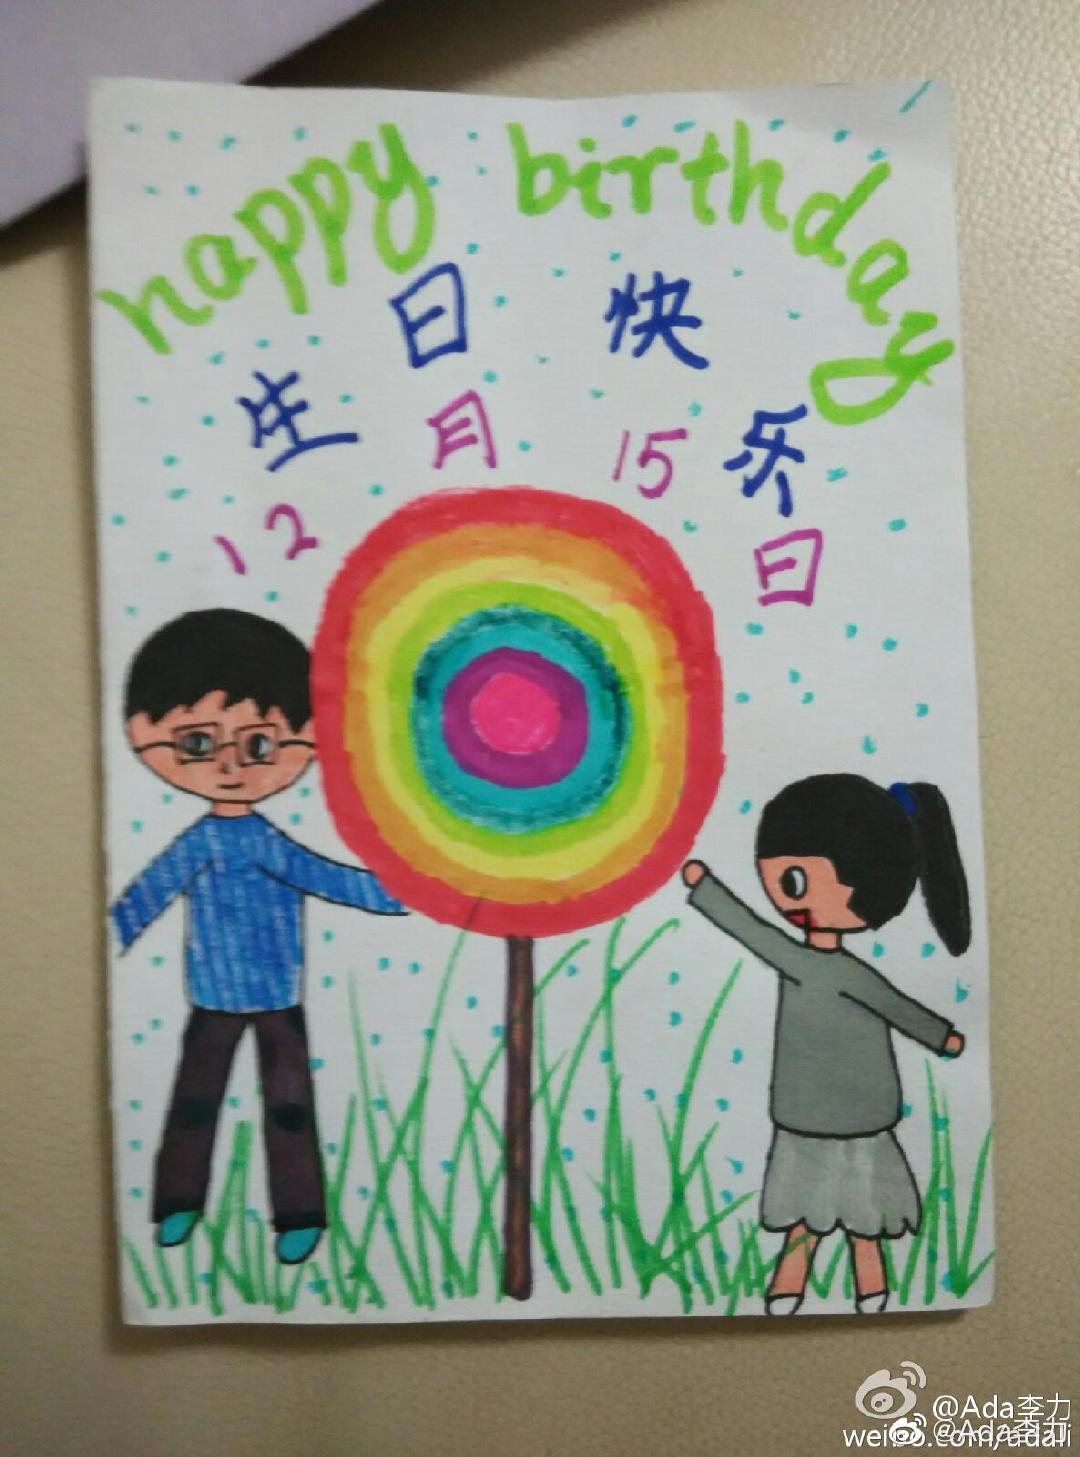 happy birthday
生日快乐
12月15日
@Ada李力
@Ada李力
weibo.com/adali